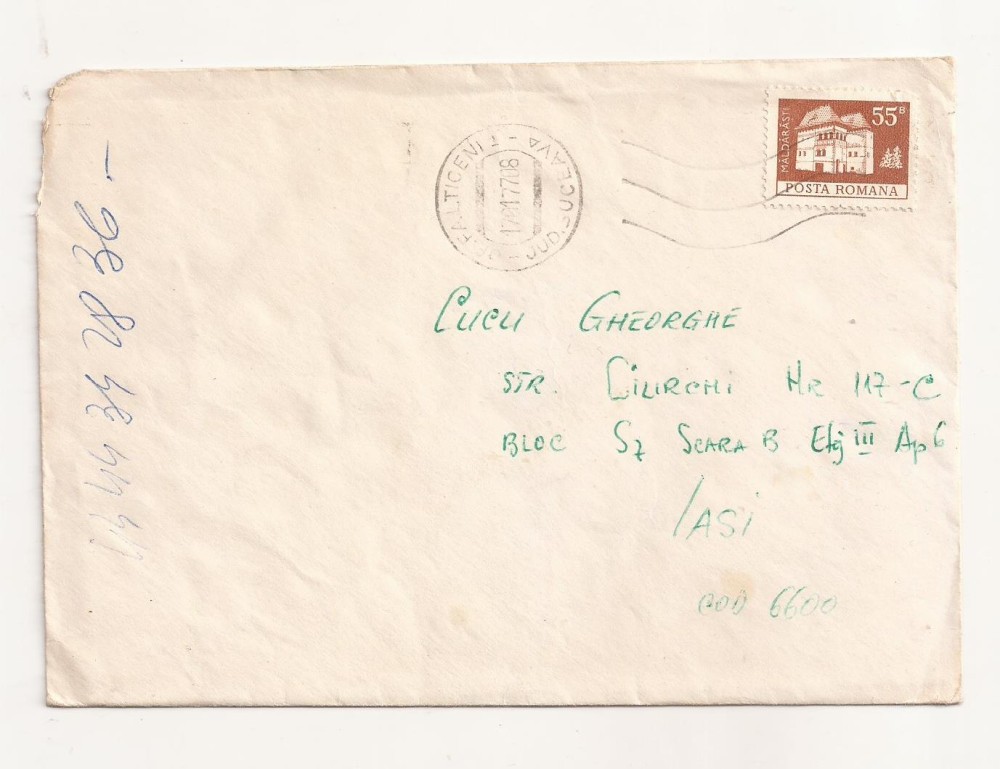 MĂLDĂRĂȘTI
55B
POSTA ROMANA
FALTICENI 1 - JUD. SUCEAVA
CUCU GHEORGHE
STR. CILIRCHI Nr 117-C
BLOC Sz SCARA B Etj III Ap 6
IASI
COD 6600